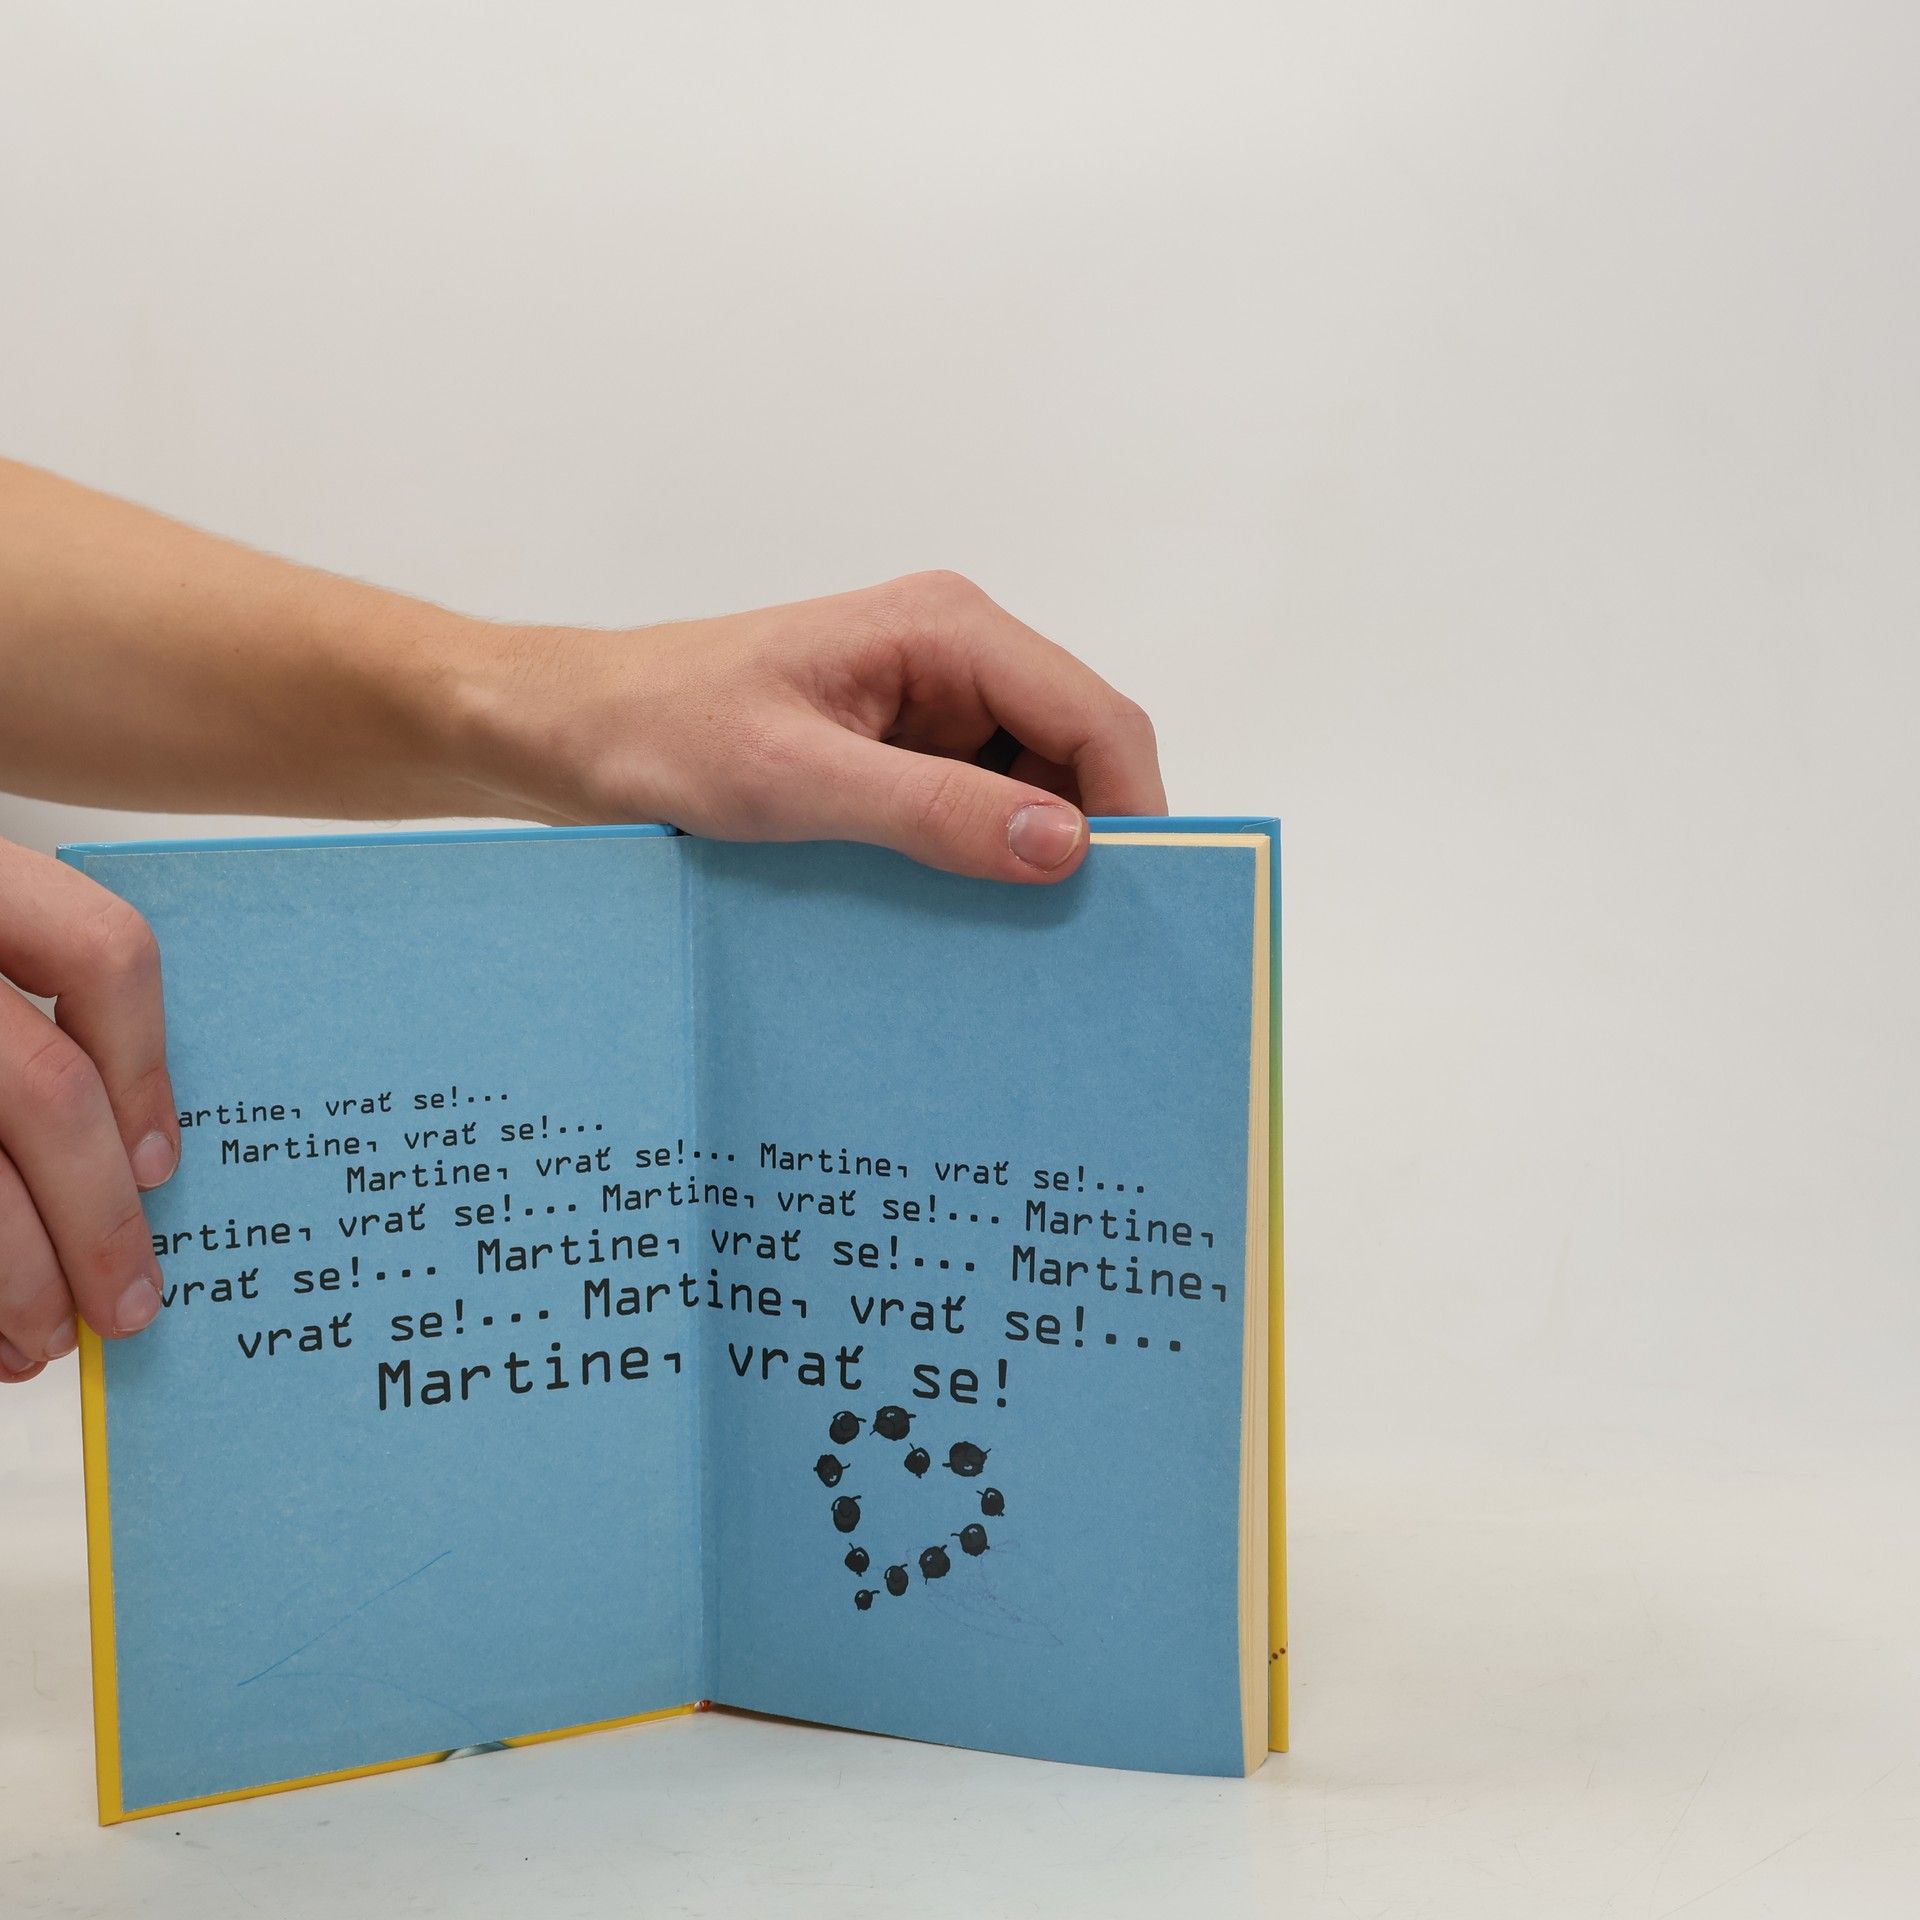 artine, vrať se!...
Martine, vrať se!...
Martine, vrať se!... Martine, vrať se!...
artine, vrať se!... Martine, vrať se!... Martine,
vrať se!... Martine, vrať se!... Martine,
vrať se!... Martine, vrať se!...
Martine, vrať se!